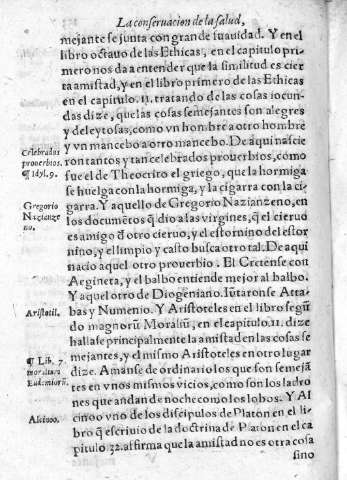 La conseruacion de la salud,
mejante se junta con grande suauidad. Y en el
libro octauo de las Ethicas, en el capitulo pri-
mero nos da a entender que la similitud es cier
ta amistad, y en el libro primero de las Ethicas
en el capitulo. 11. tratando de las cosas iocun-
das dize, que las cosas semejantes son alegres
y deleytosas, como vn hombre a otro hombre
y vn mancebo a otro mancebo. De aqui nascie
Celebrados
prouerbios.
ron tantos y tan celebrados prouerbios, como
¶ Idyl. 9.
fue el de Theocrito el griego, que la hormiga
se huelga con la hormiga, y la cigarra con la ci-
Gregorio
Nazianze
no.
garra. Y aquello de Gregorio Nazianzeno, en
los documẽtos q̃ dio a las virgines, q̃ el cieruo
es amigo đ otro cieruo, y el estornino del estor
nino, y el limpio y casto busca otro tal. De aqui
nacio aquel otro prouerbio. El Cretense con
Aegineta, y el balbo entiende mejor al balbo.
Y aquel otro de Diogeniano. Iũtaronse Atta-
Aristotil.
bas y Numenio. Y Aristoteles en el libro segũ
do magnorũ Moraliũ, en el capitulo. 11. dize
hallase principalmente la amistad en las cosas se
¶ Lib. 7.
moraliũ
Eudemiorũ.
mejantes, y el mismo Aristoteles en otro lugar
dize. Amanse de ordinario los que son semejã
tes en vnos mismos vicios, como son los ladro
nes que andan de noche como los lobos. Y Al
Alcinoo.
cinoo vno de los discipulos de Platon en el li-
bro q̃ escriuio de la doctrina de Platon en el ca
pitulo 32. affirma que la amistad no es otra cosa
sino